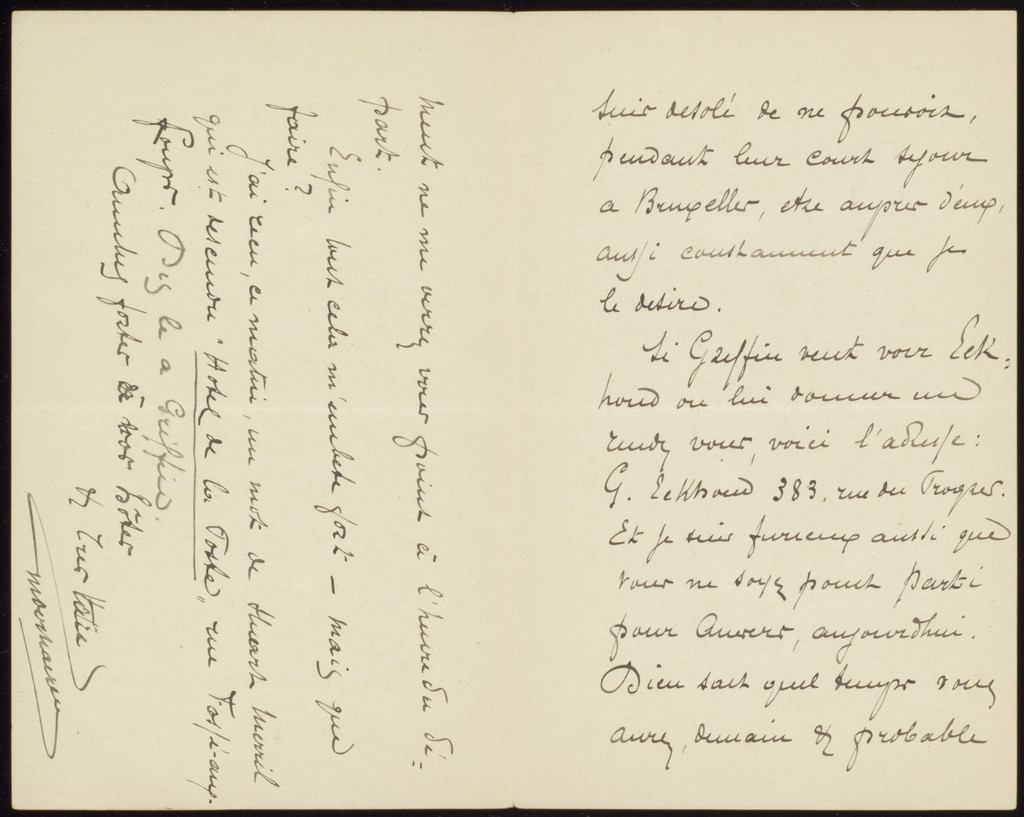 suis desolé de ne pouvoir,
pendant leur court sejour
a Bruxelles, etre aupres d'eux,
aussi constamment que je
le desire.
Si Griffin veut voir Eek-
houd ou lui donner un
rendez vous, voici l'adresse:
G. Eekhoud 383, rue du Progres.
Et je suis furieux aussi que
vous ne soyez point parti
pour Anvers, aujourdhui.
Dieu sait quel temps vous
aurez, demain & probable
ment ne me verrez vous point à l'heure du dé-
part.
Enfin tout cela m'embete fort – mais que
faire?
J'ai recu, ce matin, un mot de Stuart Merril
qui est descendu "Hotel de la Poste" rue Fossé aux
Loups. Dis le a Griffin
Amities fortes à vos hôtes
& Tres